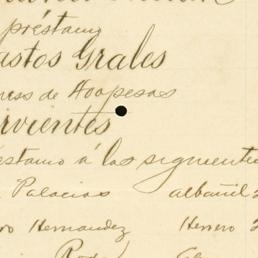 préstamo
astos Grales
ress de Hoapesas
rvientes
éstamo á los siguiente
Palacios albañil 2
ro Hernandez Herrero 2